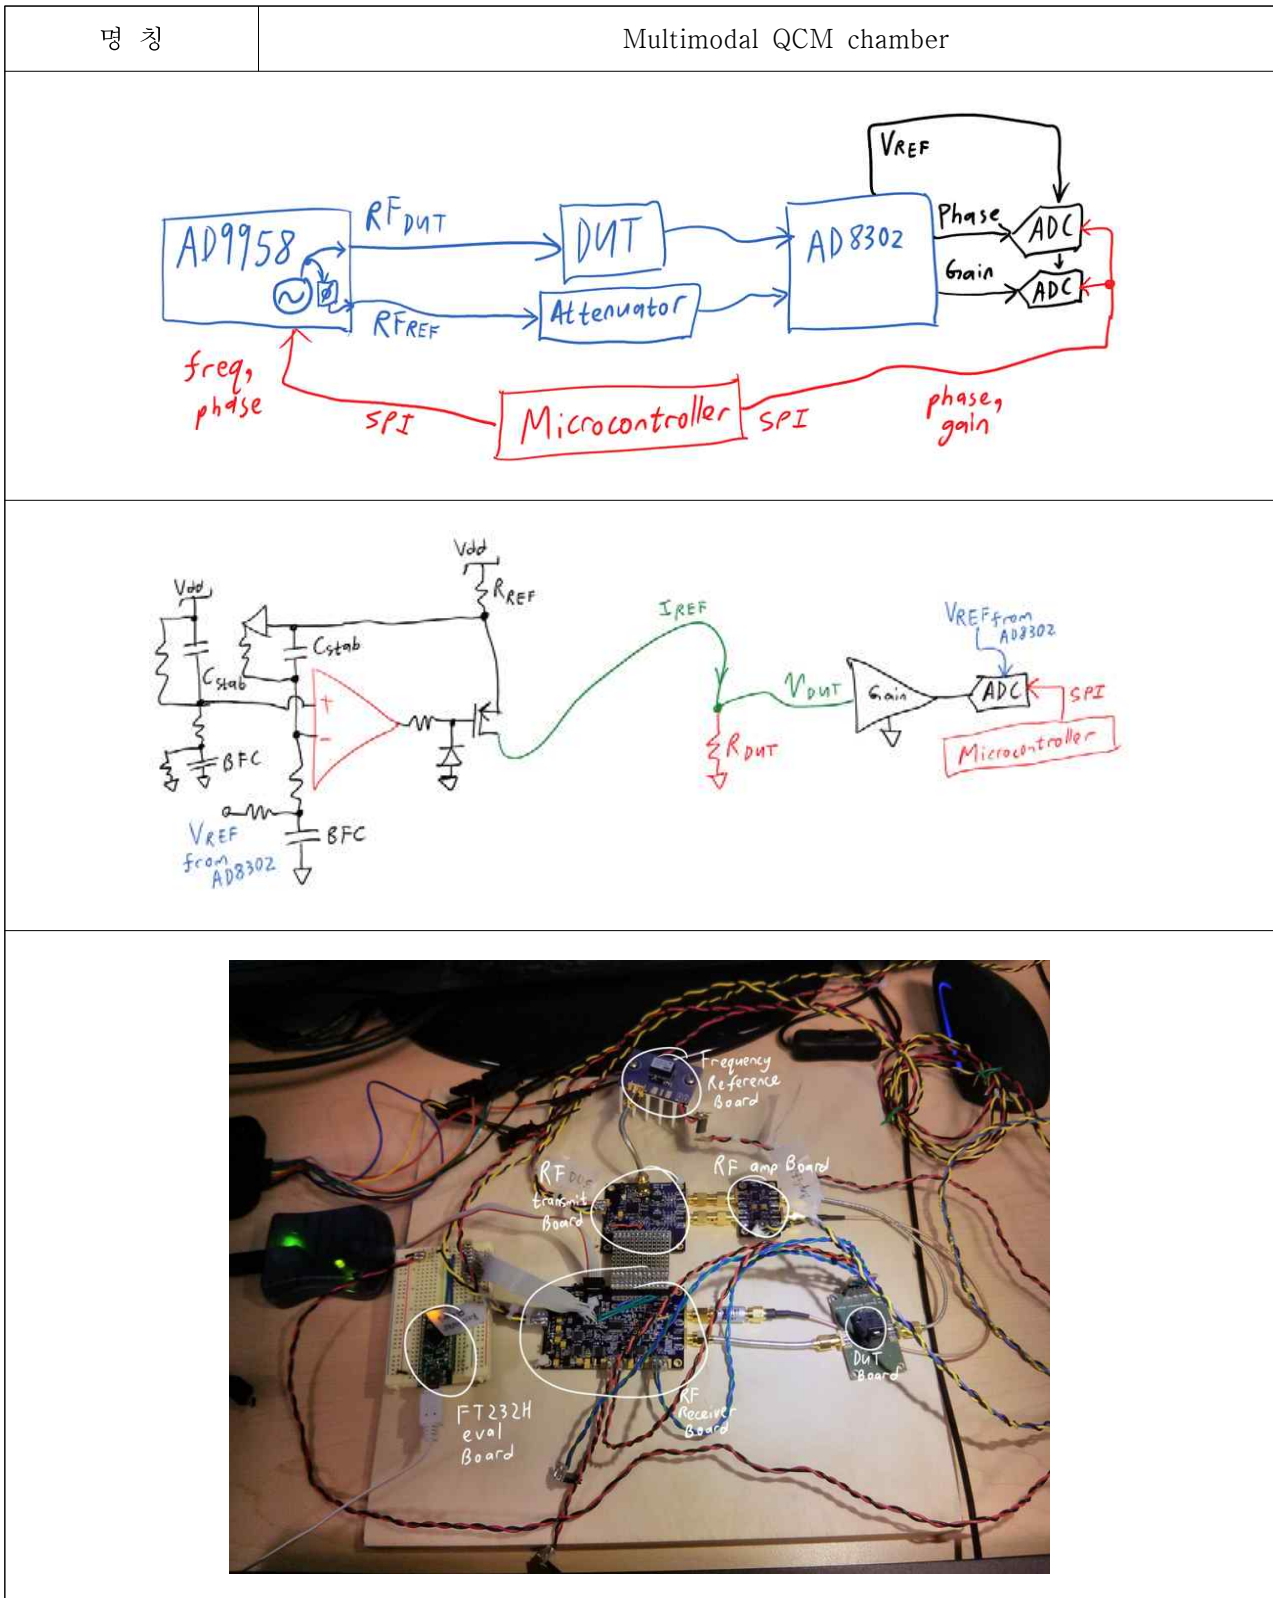 명 칭
Multimodal QCM chamber
VREF
AD9958
RF DUT
DUT
AD8302
Phase
ADC
Gain
ADC
ø
RF REF
Attenuator
freq,
phase
SPI
Microcontroller
SPI
phase,
gain
Vdd
Vdd
RREF
Cstab
Cstab
+
-
BFC
VREF
from
AD8302
BFC
IREF
VDUT
RDUT
Gain
VREF from
AD8302
ADC
SPI
Microcontroller
Frequency
Reference
Board
RF
transmit
Board
RF amp Board
FT232H
eval
Board
RF
Receiver
Board
DUT
Board